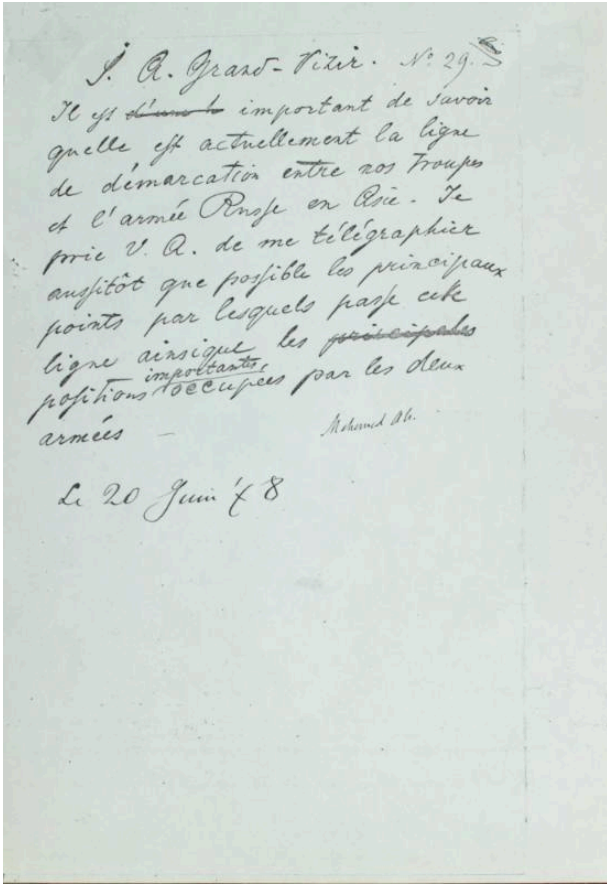 S. A. Grand-Vizir. No. 29.
Il est important de savoir
quelle est actuellement la ligne
de démarcation entre nos Troupes
et l'armée Russe en Asie. Je
prie V. A. de me télégraphier
aussitôt que possible les principaux
points par lesquels passe cette
ligne ainsique les principales
importantes,
positions occupées par les deux
armées —
Mehemed Ali.
Le 20 Juin 78